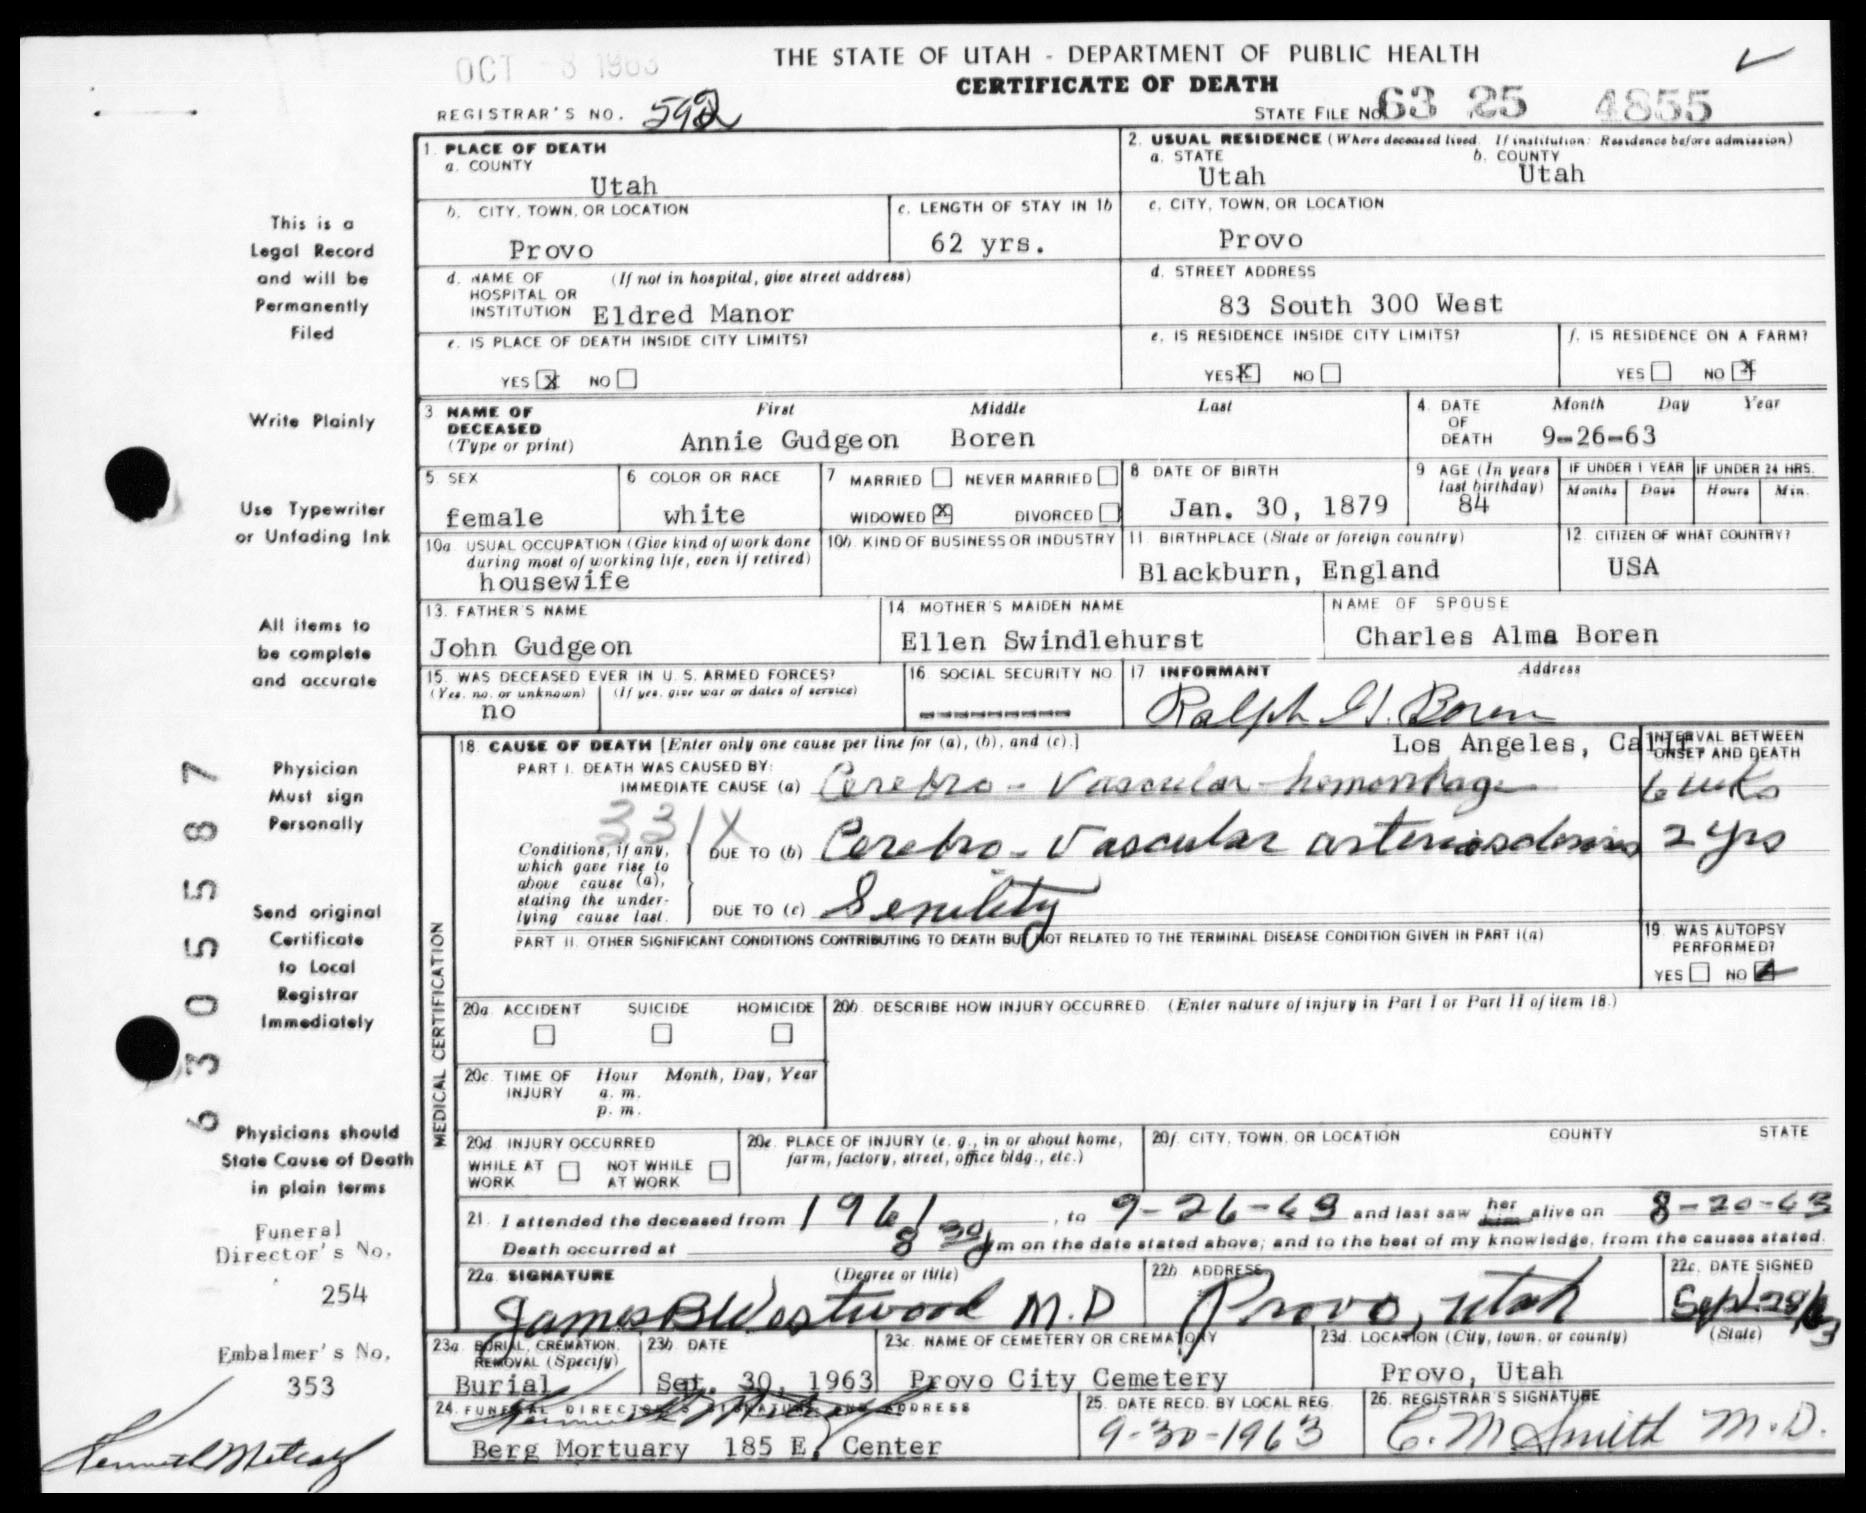 OCT - 8 1963
THE STATE OF UTAH - DEPARTMENT OF PUBLIC HEALTH
CERTIFICATE OF DEATH
REGISTRAR'S NO. 592
STATE FILE NO. 63 25 4855
1. PLACE OF DEATH
a. COUNTY
Utah
2. USUAL RESIDENCE (Where deceased lived. If institution: Residence before admission)
a. STATE
Utah
b. COUNTY
Utah
b. CITY, TOWN, OR LOCATION
Provo
c. LENGTH OF STAY IN 1b
62 yrs.
c. CITY, TOWN, OR LOCATION
Provo
d. NAME OF (If not in hospital, give street address)
HOSPITAL OR
INSTITUTION Eldred Manor
d. STREET ADDRESS
83 South 300 West
e. IS PLACE OF DEATH INSIDE CITY LIMITS?
YES X NO
e. IS RESIDENCE INSIDE CITY LIMITS?
YES X NO
f. IS RESIDENCE ON A FARM?
YES NO X
3 NAME OF DECEASED (Type or print)
First Middle Last
Annie Gudgeon Boren
4. DATE OF DEATH
Month Day Year
9-26-63
5. SEX
female
6 COLOR OR RACE
white
7 MARRIED NEVER MARRIED
WIDOWED X DIVORCED
8 DATE OF BIRTH
Jan. 30, 1879
9 AGE (In years last birthday)
84
IF UNDER 1 YEAR
Months Days
IF UNDER 24 HRS.
Hours Min.
10a USUAL OCCUPATION (Give kind of work done
during most of working life, even if retired)
housewife
10b. KIND OF BUSINESS OR INDUSTRY
11. BIRTHPLACE (State or foreign country)
Blackburn, England
12. CITIZEN OF WHAT COUNTRY?
USA
13. FATHER'S NAME
John Gudgeon
14 MOTHER'S MAIDEN NAME
Ellen Swindlehurst
NAME OF SPOUSE
Charles Alma Boren
15. WAS DECEASED EVER IN U. S. ARMED FORCES?
(Yes, no, or unknown) (If yes, give war or dates of service)
no
16. SOCIAL SECURITY NO.
---------
17 INFORMANT Address
Ralph G. Boren
Los Angeles, Calif
18. CAUSE OF DEATH [Enter only one cause per line for (a), (b), and (c).]
INTERVAL BETWEEN
ONSET AND DEATH
PART I. DEATH WAS CAUSED BY:
IMMEDIATE CAUSE (a) Cerebro-Vascular hemorrhage 6 wks
331X
Conditions, if any,
which gave rise to
above cause (a),
stating the under-
lying cause last.
DUE TO (b) Cerebro-Vascular arteriosclerosis 2 yrs
DUE TO (c) Senility
PART II. OTHER SIGNIFICANT CONDITIONS CONTRIBUTING TO DEATH BUT NOT RELATED TO THE TERMINAL DISEASE CONDITION GIVEN IN PART I(a)
19. WAS AUTOPSY
PERFORMED?
YES NO
MEDICAL CERTIFICATION
20a. ACCIDENT SUICIDE HOMICIDE
20b. DESCRIBE HOW INJURY OCCURRED. (Enter nature of injury in Part I or Part II of item 18.)
20c. TIME OF INJURY
Hour Month, Day, Year
a. m.
p. m.
20d. INJURY OCCURRED
WHILE AT WORK NOT WHILE AT WORK
20e. PLACE OF INJURY (e. g., in or about home,
farm, factory, street, office bldg., etc.)
20f. CITY, TOWN, OR LOCATION COUNTY STATE
21. I attended the deceased from 1961, to 9-26-63 and last saw her him alive on 8-20-63
Death occurred at 8 30 pm on the date stated above; and to the best of my knowledge, from the causes stated.
22a. SIGNATURE (Degree or title)
James B Westwood M.D
22b. ADDRESS
Provo, Utah
22c. DATE SIGNED
Sept 28/63
23a. BURIAL, CREMATION,
REMOVAL (Specify)
Burial
23b. DATE
Set. 30, 1963
23c. NAME OF CEMETERY OR CREMATORY
Provo City Cemetery
23d. LOCATION (City, town, or county) (State)
Provo, Utah
24. FUNERAL DIRECTOR'S SIGNATURE AND ADDRESS
Berg Mortuary 185 E. Center
25. DATE RECD. BY LOCAL REG.
9-30-1963
26. REGISTRAR'S SIGNATURE
C. M Smith M.D.
This is a
Legal Record
and will be
Permanently
Filed
Write Plainly
Use Typewriter
or Unfading Ink
All items to
be complete
and accurate
Physician
Must sign
Personally
Send original
Certificate
to Local
Registrar
Immediately
Physicians should
State Cause of Death
in plain terms
63055587
Funeral
Director's No.
254
Embalmer's No.
353
Kenneth Metcalf